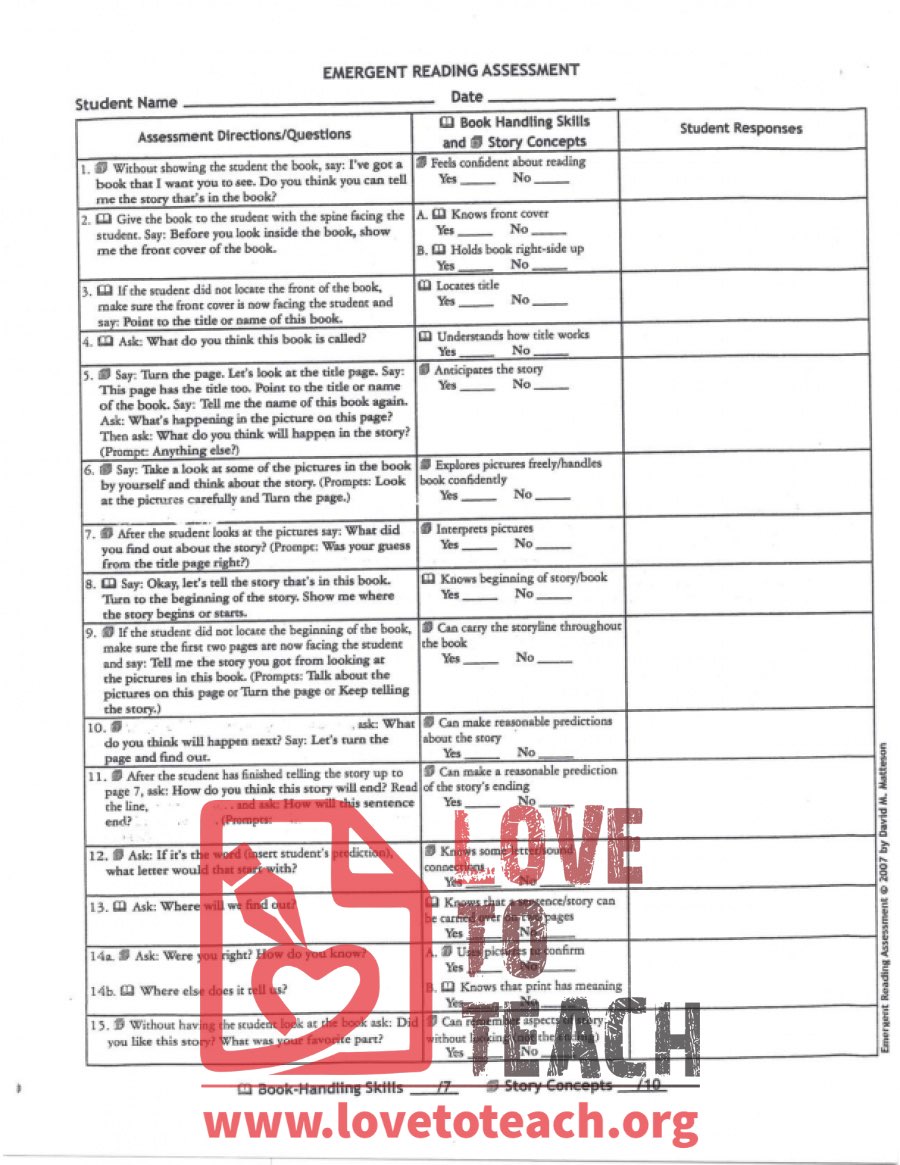 EMERGENT READING ASSESSMENT
Student Name ____________ Date ____________
Assessment Directions/Questions
Book Handling Skills
and Story Concepts
Student Responses
1. Without showing the student the book, say: I've got a
book that I want you to see. Do you think you can tell
me the story that's in the book?
Feels confident about reading
Yes _____ No _____
2. Give the book to the student with the spine facing the
student. Say: Before you look inside the book, show
me the front cover of the book.
A. Knows front cover
Yes _____ No _____
B. Holds book right-side up
Yes _____ No _____
3. If the student did not locate the front of the book,
make sure the front cover is now facing the student and
say: Point to the title or name of this book.
Locates title
Yes _____ No _____
4. Ask: What do you think this book is called?
Understands how title works
Yes _____ No _____
5. Say: Turn the page. Let's look at the title page. Say:
This page has the title too. Point to the title or name
of the book. Say: Tell me the name of this book again.
Ask: What's happening in the picture on this page?
Then ask: What do you think will happen in the story?
(Prompt: Anything else?)
Anticipates the story
Yes _____ No _____
6. Say: Take a look at some of the pictures in the book
by yourself and think about the story. (Prompts: Look
at the pictures carefully and Turn the page.)
Explores pictures freely/handles
book confidently
Yes _____ No _____
7. After the student looks at the pictures say: What did
you find out about the story? (Prompt: Was your guess
from the title page right?)
Interprets pictures
Yes _____ No _____
8. Say: Okay, let's tell the story that's in this book.
Turn to the beginning of the story. Show me where
the story begins or starts.
Knows beginning of story/book
Yes _____ No _____
9. If the student did not locate the beginning of the book,
make sure the first two pages are now facing the student
and say: Tell me the story you got from looking at
the pictures in this book. (Prompts: Talk about the
pictures on this page or Turn the page or Keep telling
the story.)
Can carry the storyline throughout
the book
Yes _____ No _____
10. ask: What
do you think will happen next? Say: Let's turn the
page and find out.
Can make reasonable predictions
about the story
Yes _____ No _____
11. After the student has finished telling the story up to
page 7, ask: How do you think this story will end? Read
the line, and ask: How will this sentence
end? (Prompts:
Can make a reasonable prediction
of the story's ending
Yes _____ No _____
12. Ask: If it's the word (insert student's prediction),
what letter would that start with?
Knows some letter/sound
connections
Yes _____ No _____
13. Ask: Where will we find out?
Knows that a sentence/story can
be carried over on two pages
Yes _____ No _____
14a. Ask: Were you right? How do you know?
A. Uses pictures to confirm
Yes _____ No _____
14b. Where else does it tell us?
B. Knows that print has meaning
Yes _____ No _____
15. Without having the student look at the book ask: Did
you like this story? What was your favorite part?
Can remember aspects of story
without looking (not the ending)
Yes _____ No _____
Book-Handling Skills ___/7 Story Concepts ___/10
Emergent Reading Assessment © 2007 by David M. Matteson
LOVE
TO
TEACH
www.lovetoteach.org